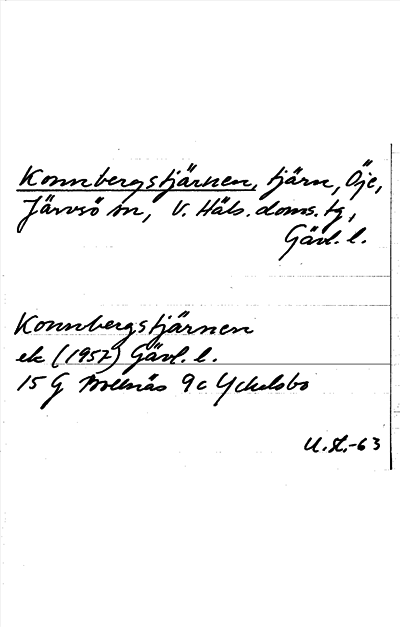 Konnbergstjärnen, tjärn, Öje,
Järvsö sn, V. Häls. doms. tg,
Gävl. l.
Konnbergstjärnen
ek (1957) Gävl. l.
15 G Bollnäs 9c Yckelsbo
U.St.-63